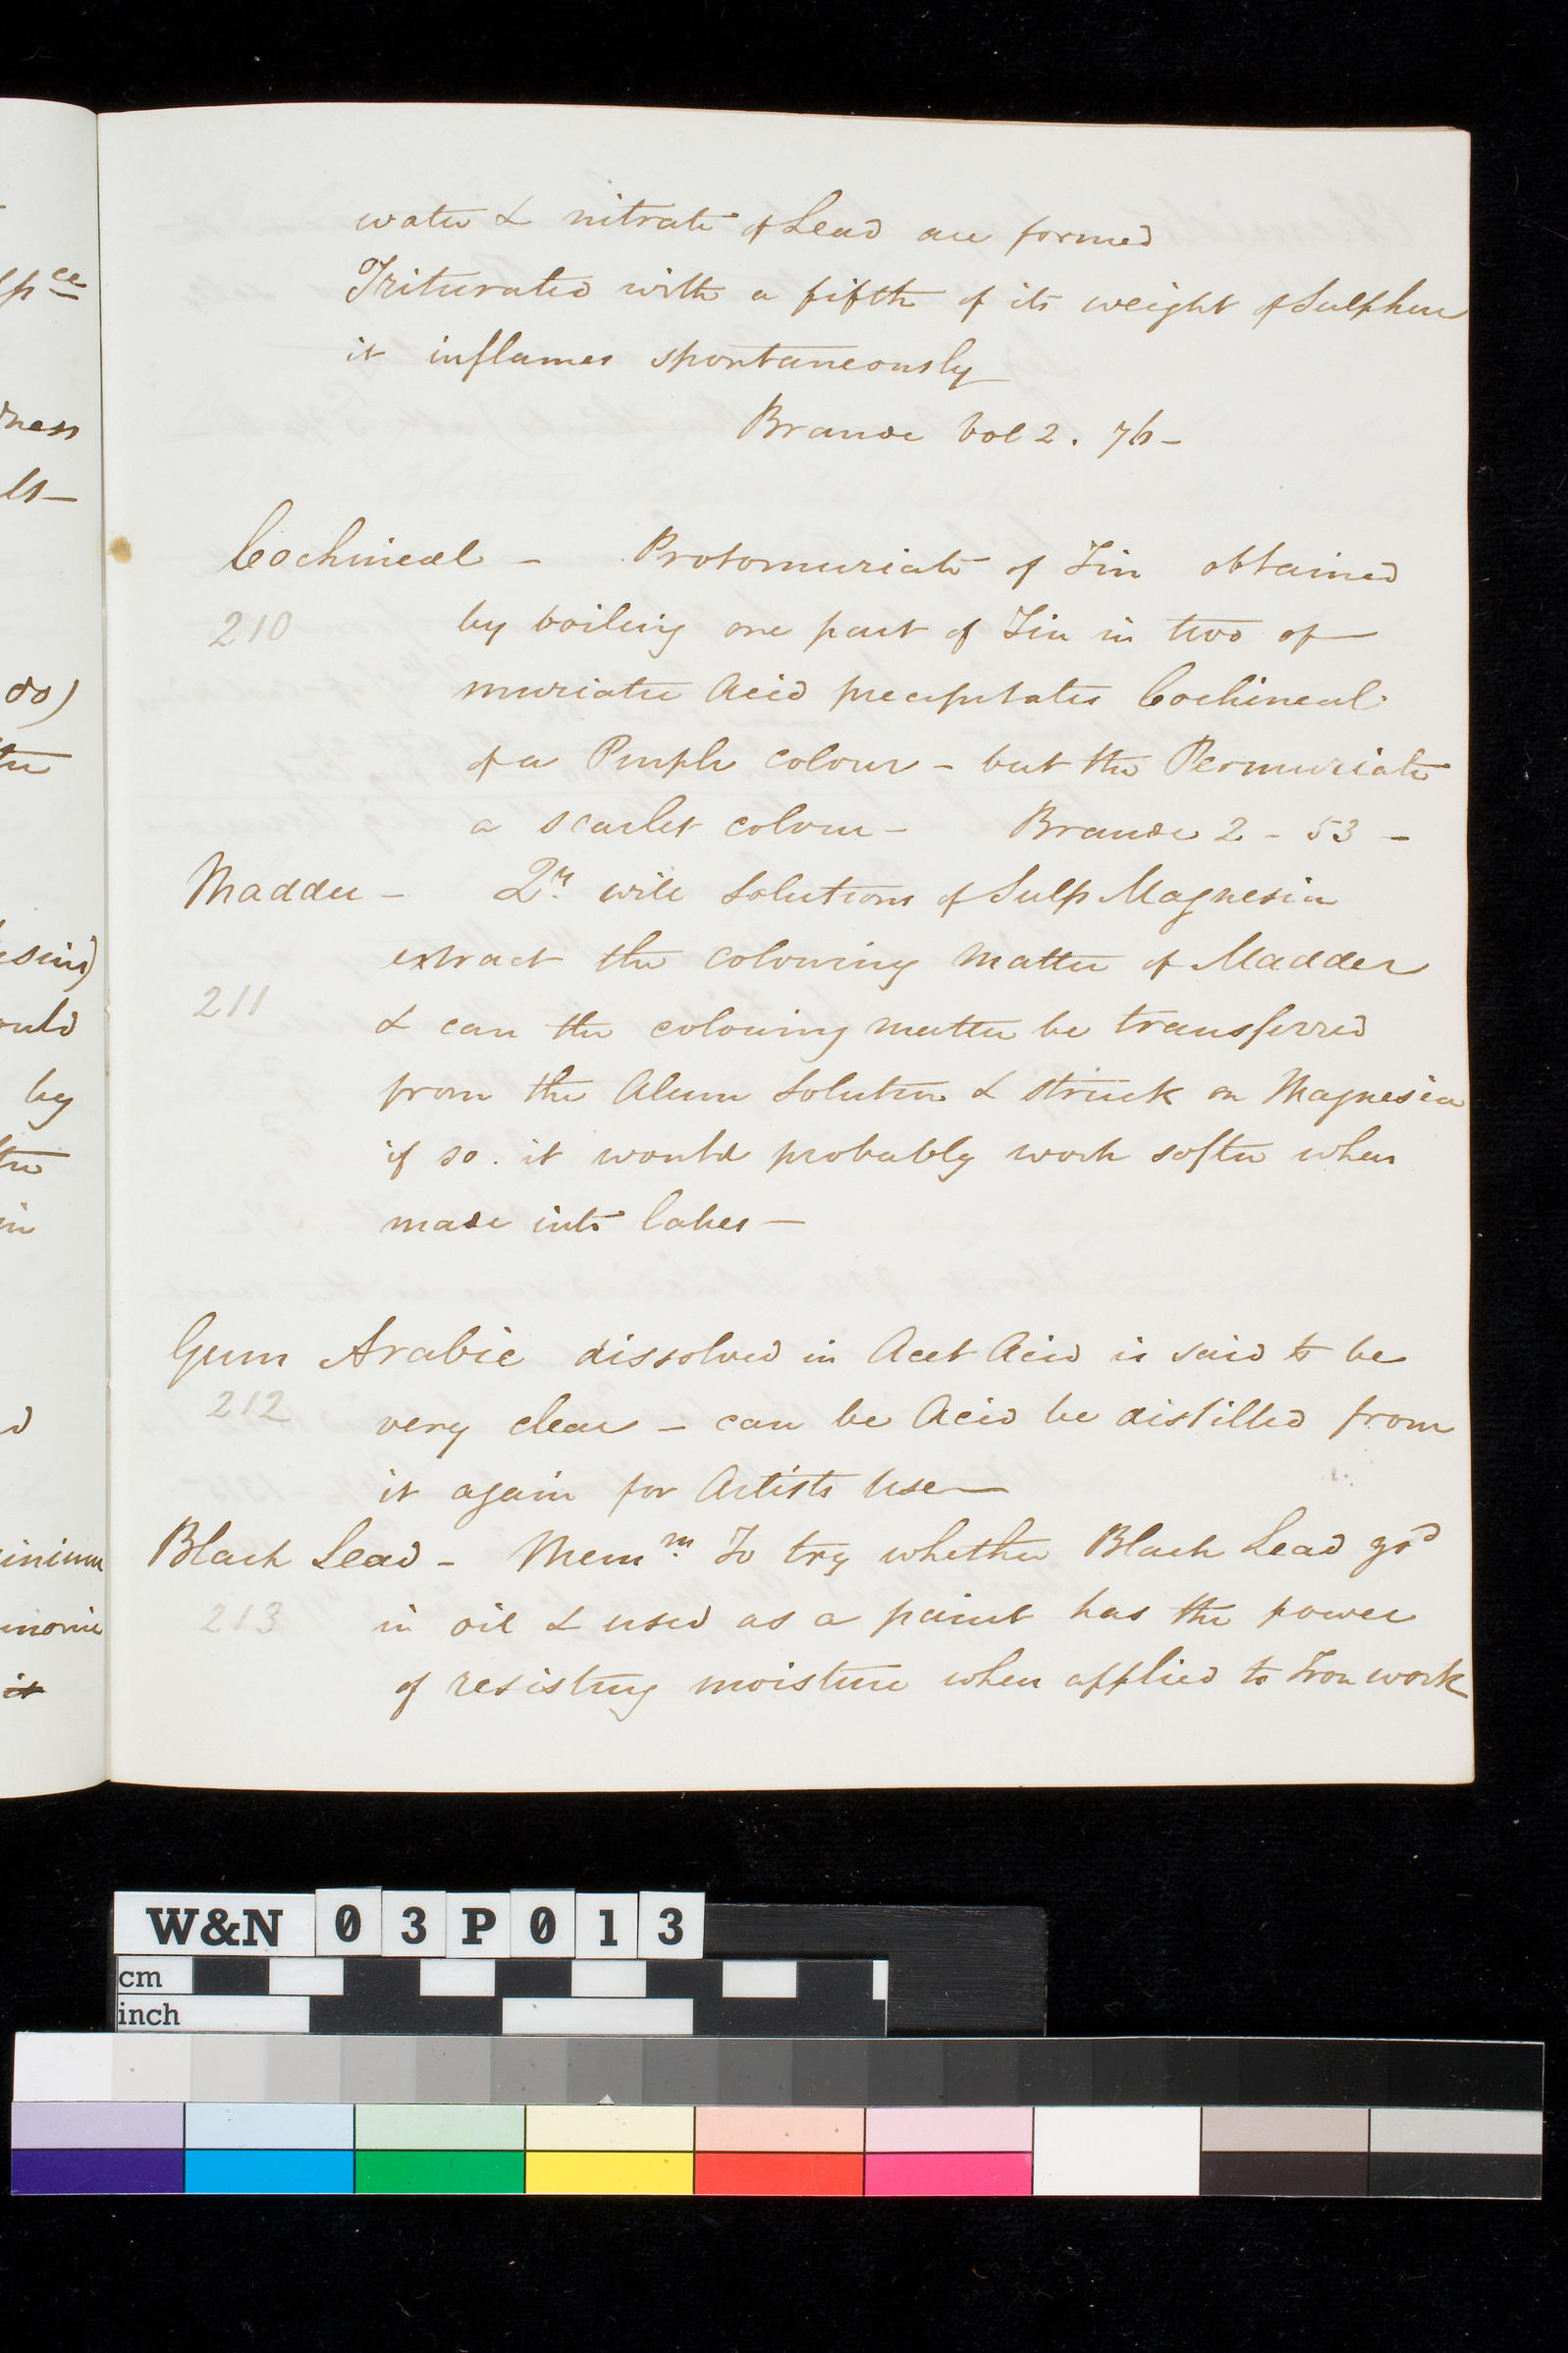 water & nitrate of Lead are formed
Triturated with a fifth of its weight of Sulphur
it inflames spontaneously
Brande Vol 2. 76-
Cochineal - Protomuriate of Tin obtained
210 by boiling one part of Tin in two of
muriatic Acid precipitates Cochineal
of a Purple colour - but the Permuriate
a scarlet colour - Brande 2 - 53 -
Madder - Qy. will Solutions of Sulp Magnesia
extract the colouring matter of Madder
211
& can the colouring matter be transferred
from the Alum Solution & struck on Magnesia
if so. it would probably work softer when
made into lakes -
Gum Arabic dissolved in Acet Acid is said to be
212 very clear - can be Acid be distilled from
it again for Artists Use
Black Lead - Memm. To try whether Black Lead gd
213 in oil & used as a paint has the power
of resisting moisture when applied to Iron work
pce
ness
do)
ould
by
in
it
W&N 03P013
cm
inch